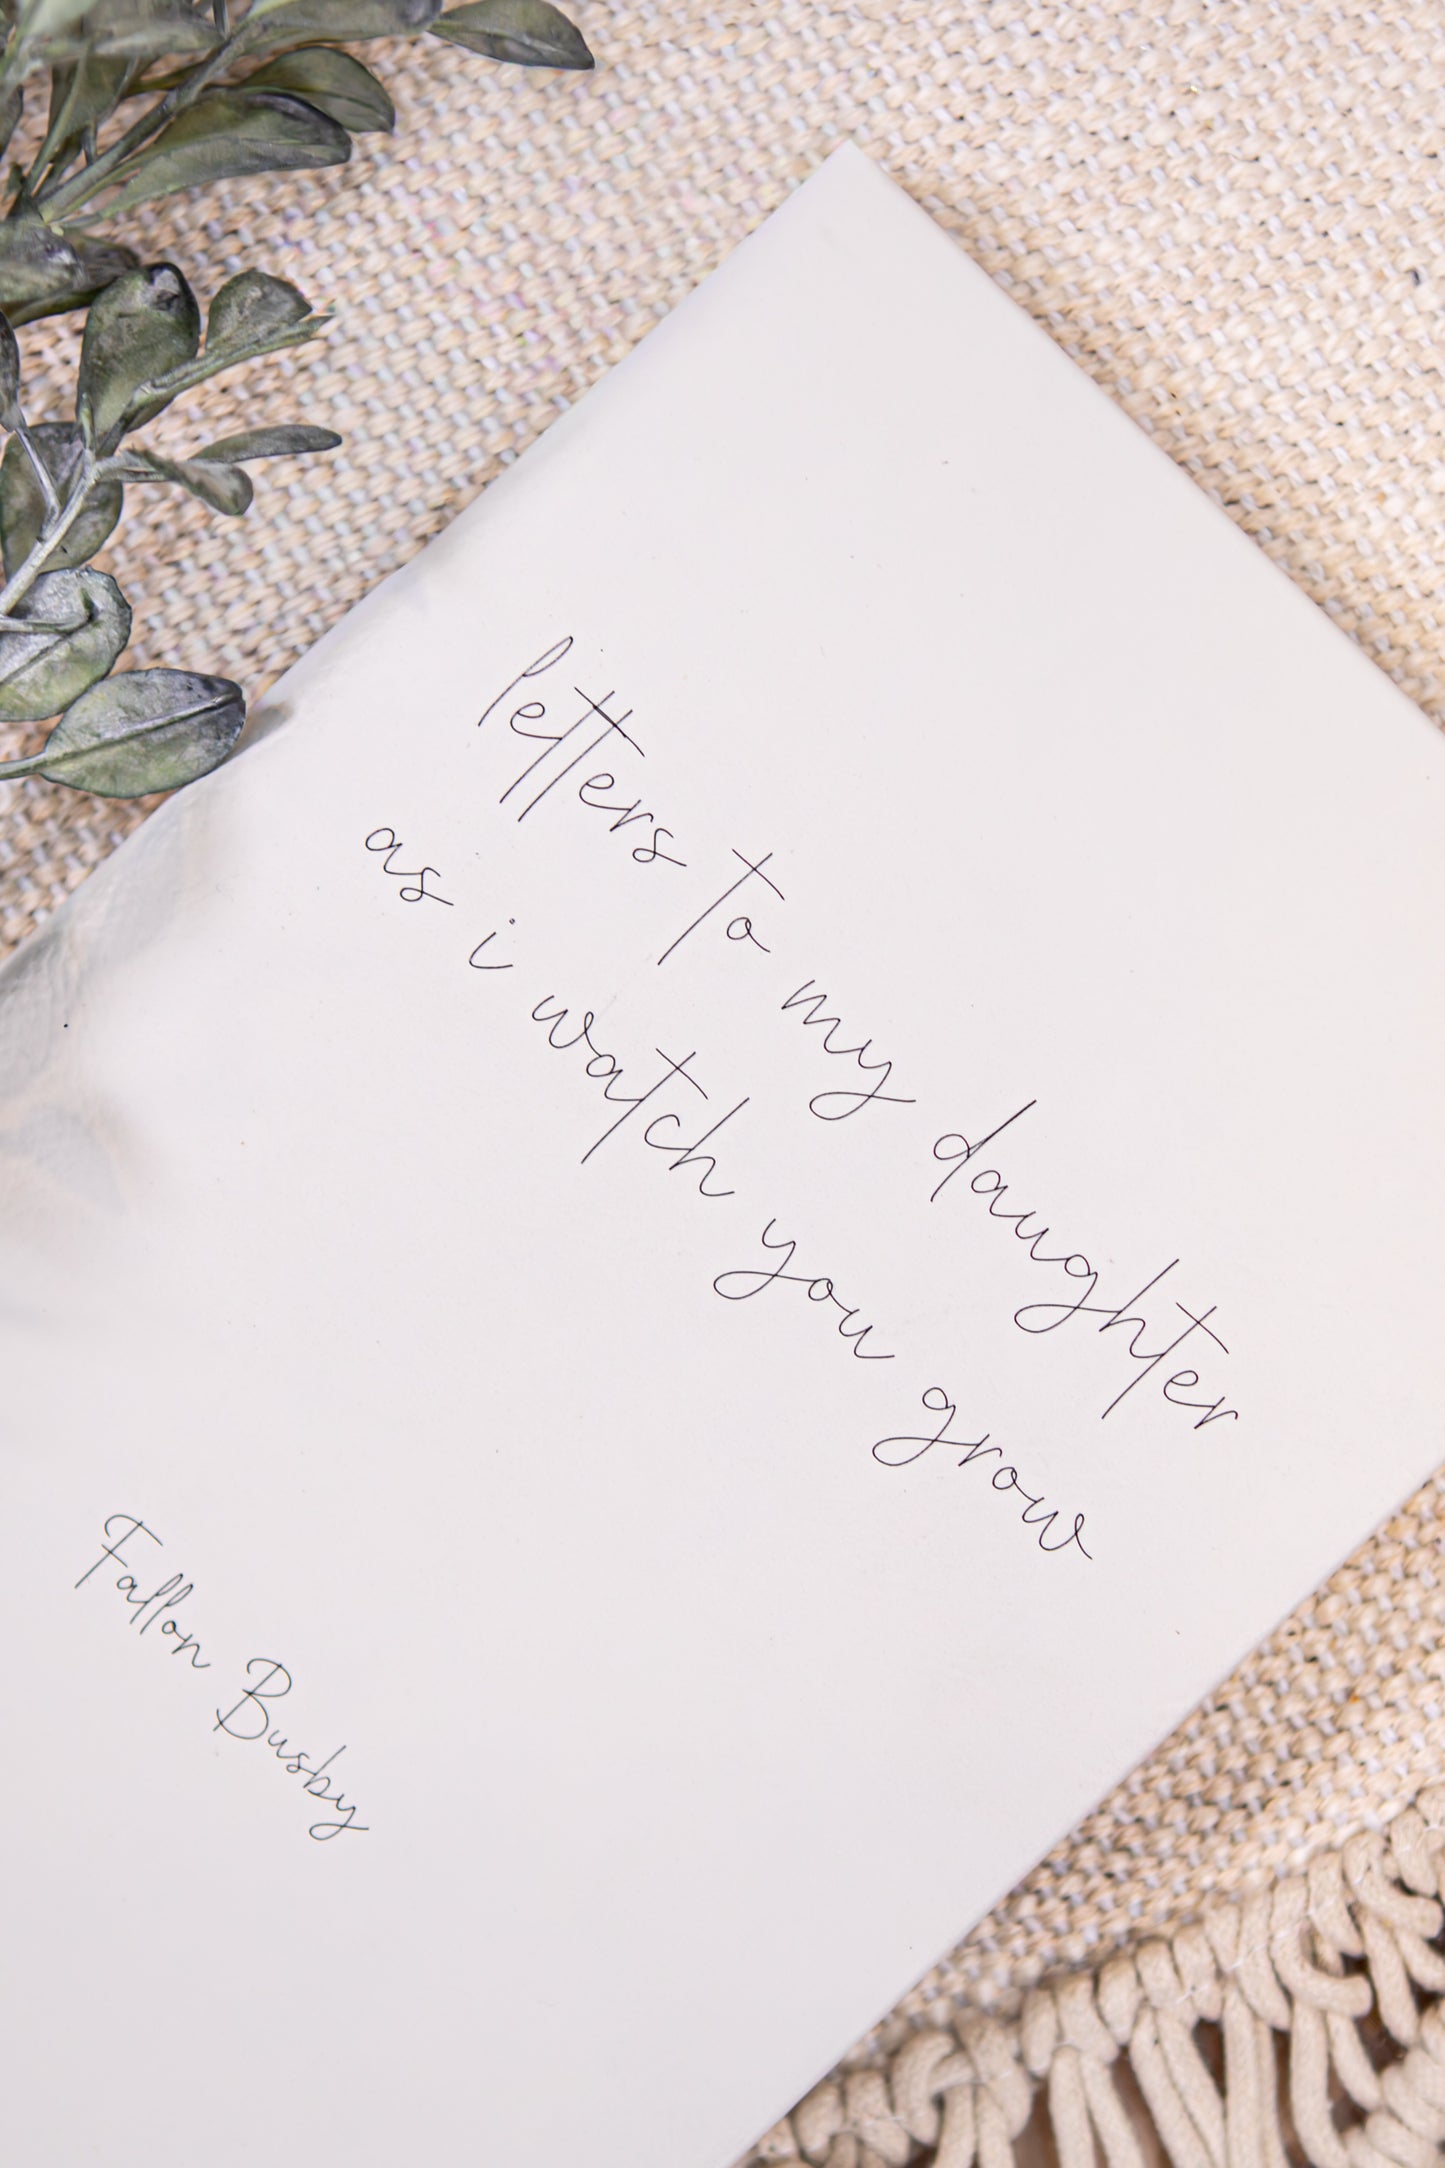 letters to my daughter
as i watch you grow
Fallon Busby